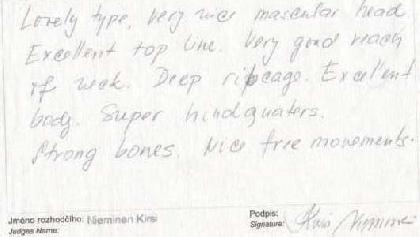 Lovely type, very nice mascular head
Excellent top line. Very good reach
of neck. Deep ripcage. Excellent
body. Super hindquaters.
Strong bones. Nice free movements.
Jméno rozhodčího: Nieminen Kirsi
Judges Name:
Podpis:
Signature: Kirsi Nieminen